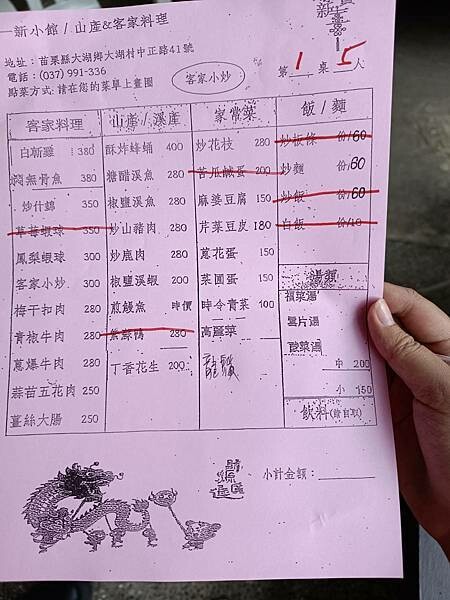 一新小館/山產&客家料理
地址：苗栗縣大湖鄉大湖村中正路41號
電話：(037) 991-336
點菜方式：請在您的菜單上畫圈
客家小炒
第 1 桌 5 人
客家料理
白斬雞 380
燜無骨魚 380
炒什錦 350
草莓蝦球 350
鳳梨蝦球 300
客家小炒 300
梅干扣肉 280
青椒牛肉 280
蔥爆牛肉 280
蒜苗五花肉 250
薑絲大腸 250
山產/溪產
酥炸蜂蛹 400
糖醋溪魚 280
椒鹽溪魚 280
炒山豬肉 280
炒鹿肉 280
椒鹽溪蝦 200
煎鰻魚 時價
紫蘇鴨 280
丁香花生 200
家常菜
炒花枝 280
苦瓜鹹蛋 200
麻婆豆腐 150
芹菜豆皮 180
蔥花蛋 150
菜圃蛋 150
時令青菜 100
高麗菜
龍鬚
飯/麵
炒板條 份/60
炒麵 份/60
炒飯 份/60
白飯 份/10
湯類
福菜湯
薑片湯
酸菜湯
中 200
小 150
飲料(請自取)
小計金額：